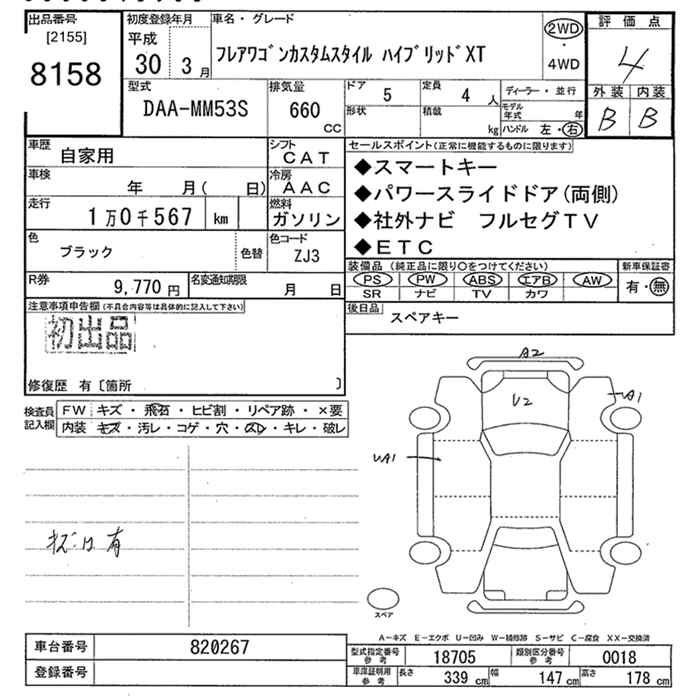 出品番号
[2155]
8158
初度登録年月
平成
30 3月
車名・グレード
フレアワゴンカスタムスタイル ハイブリッドXT
2WD
・
4WD
評価点
4
外装 内装
B B
型式
DAA-MM53S
排気量
660
CC
ドア 5
定員 4 人
形状
積載 kg
ディーラー・並行
モデル年式 年
ハンドル 左・右
車歴
自家用
シフト
CAT
車検
年 月( 日)
冷房
AAC
走行
1万0千567 km
燃料
ガソリン
色
ブラック
色替
色コード
ZJ3
セールスポイント(正常に機能するものに限ります)
◆スマートキー
◆パワースライドドア(両側)
◆社外ナビ フルセグTV
◆ETC
R券
9,770円
名変通知期限
月 日
装備品(純正品に限り○をつけてください)
PS PW ABS エアB AW
SR ナビ TV カワ
新車保証書
有・無
注意事項申告欄(不具合内容等は具体的に記入して下さい)
初出品
修復歴 有〔箇所 〕
後日品
スペアキー
検査員記入欄
FW キズ・飛石・ヒビ割・リペア跡・×要
内装 キズ・汚レ・コゲ・穴・スレ・キレ・破レ
キズ.は有
A2
U2
A1
UA1
スペア
A-キズ E-エクボ U-凹み W-補修跡 S-サビ C-腐食 XX-交換済
車台番号
820267
登録番号
型式指定番号参考
18705
類別区分番号参考
0018
車庫証明用参考
長さ 339cm
幅 147cm
高さ 178cm